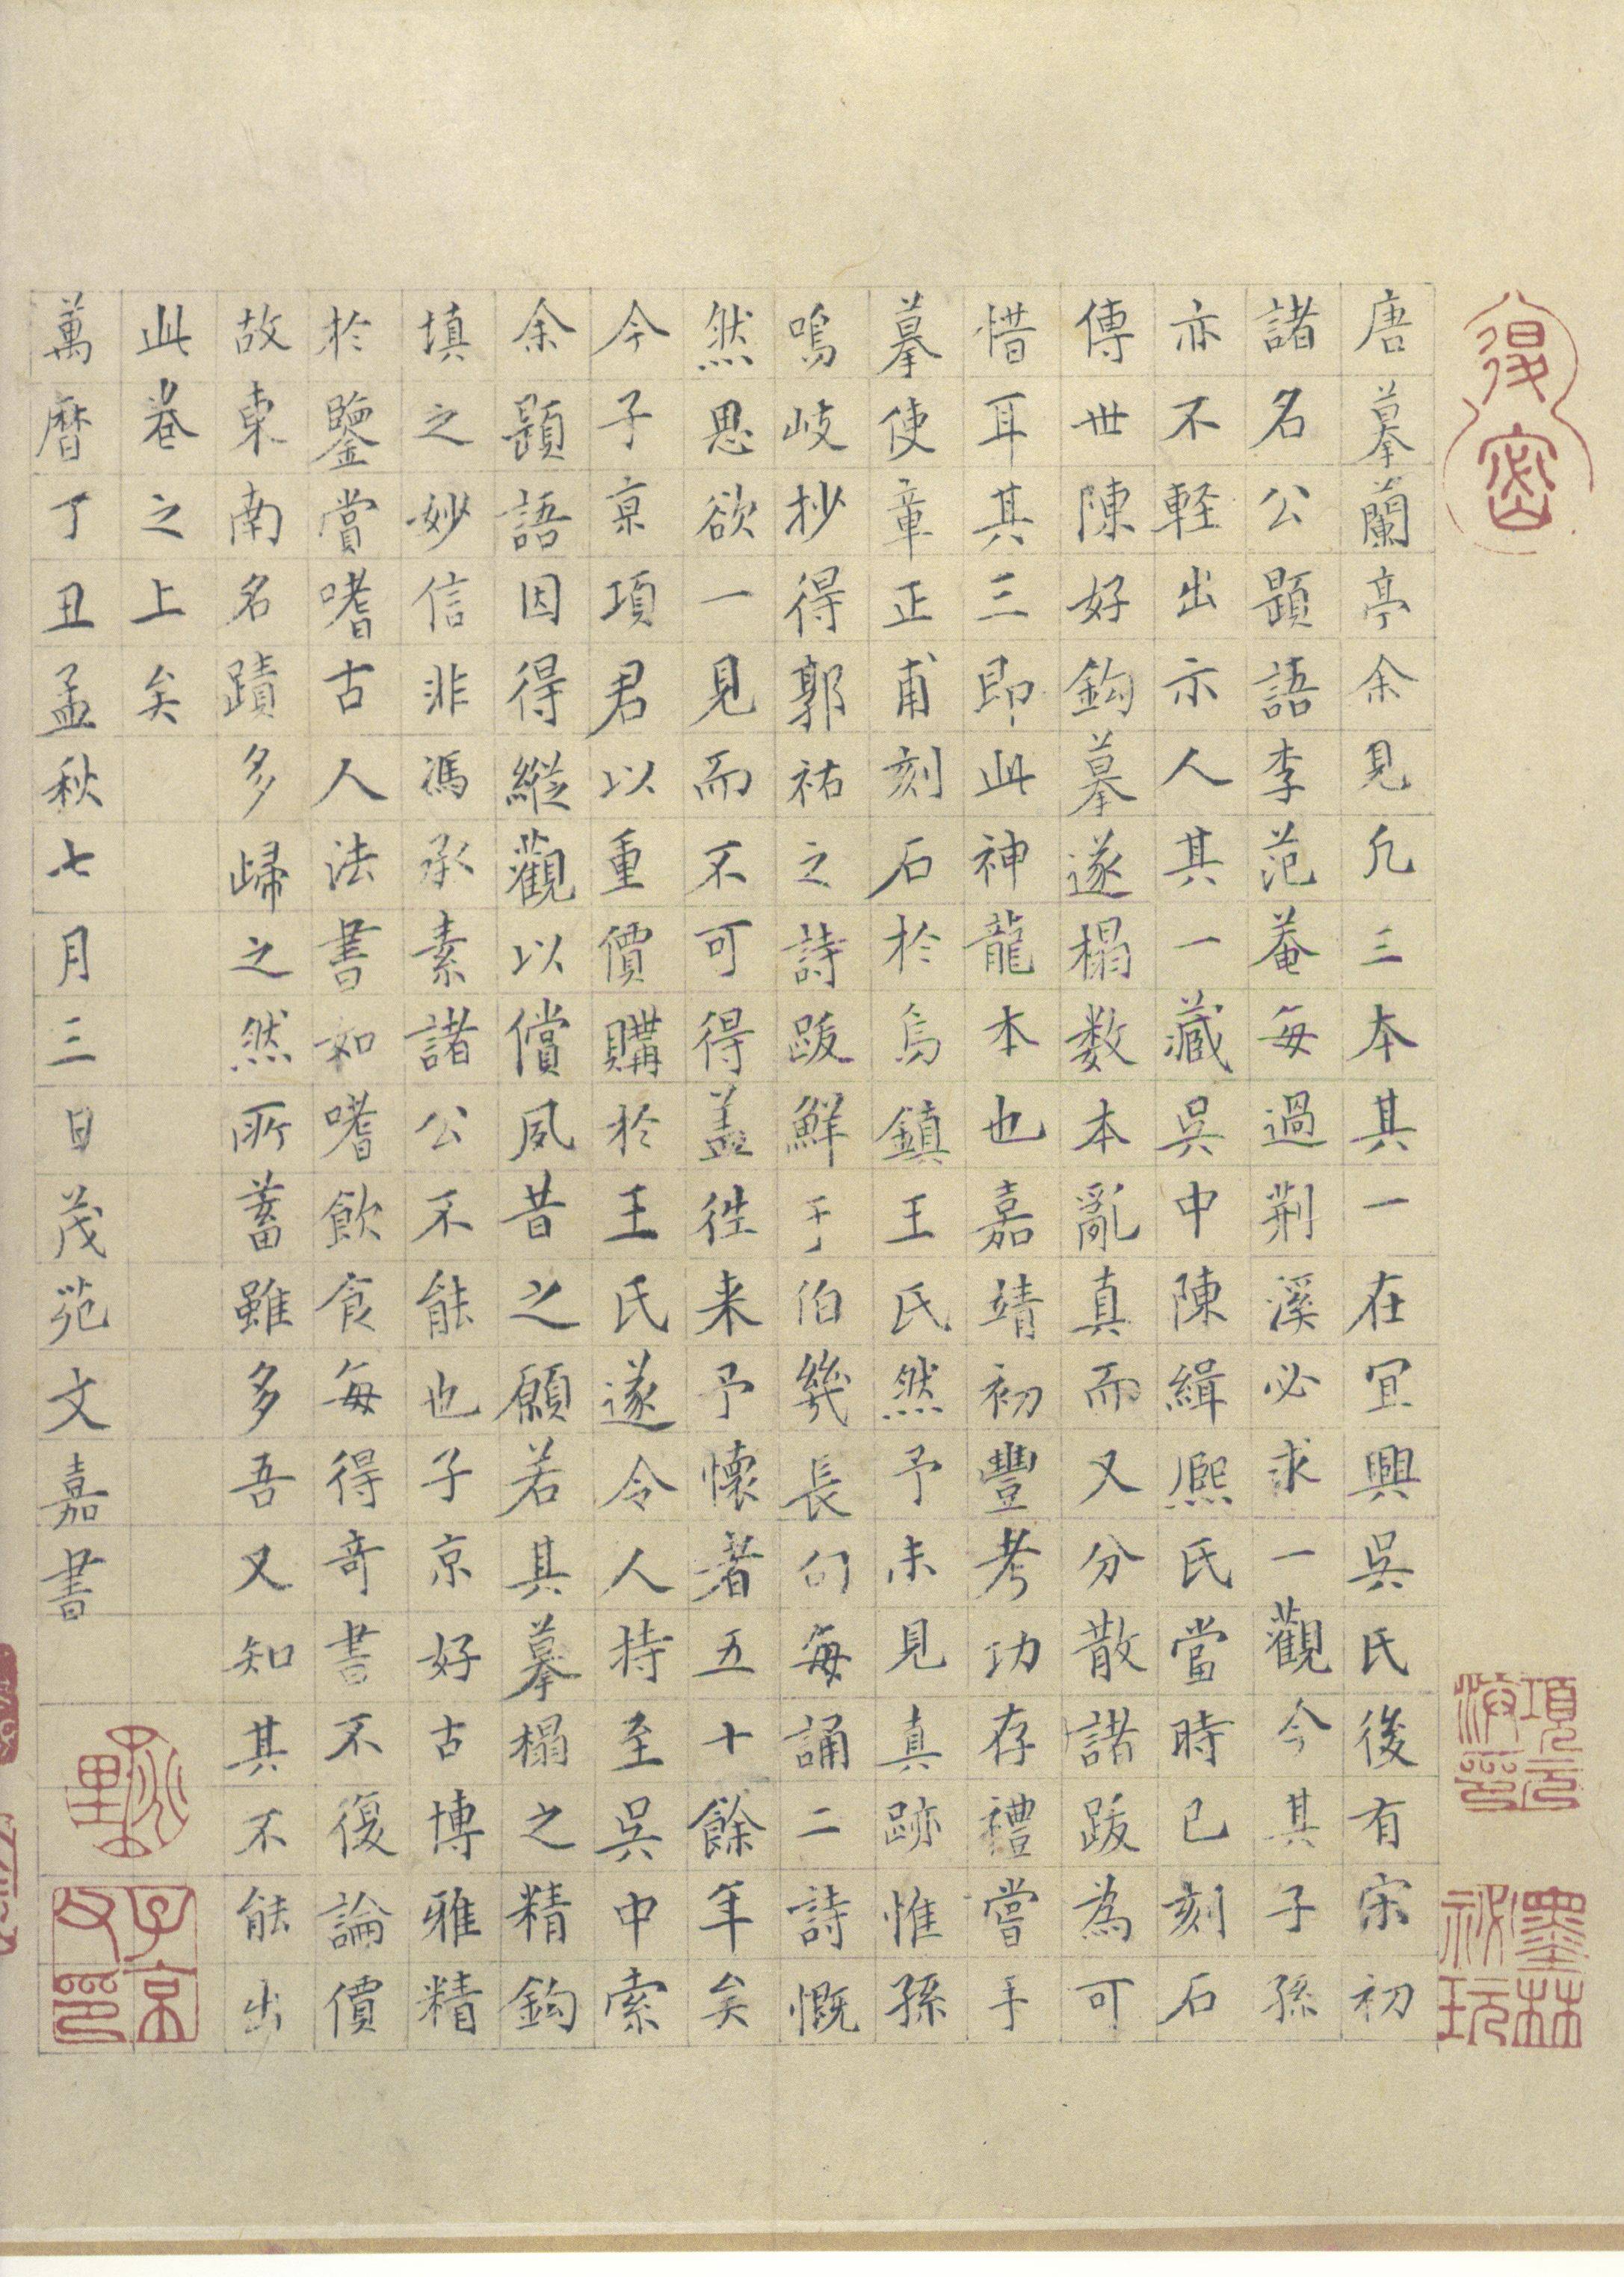 唐摹蘭亭余見凡三本其一在宜興吳氏後有宋初
諸名公題語李范菴每過荆溪必求一觀今其子孫
亦不輕出示人其一藏吳中陳緝熙氏當時已刻石
傳世陳好鈎摹遂榻数本亂真而又分散諸跋為可
惜耳其三即此神龍本也嘉靖初豐考功存禮嘗手
摹使章正甫刻石於烏鎮王氏然予未見真跡惟孫
鳴岐抄得郭祐之詩跋鮮于伯幾長句每誦二詩慨
然思欲一見而不可得盖徃来予懷者五十餘年矣
今子京項君以重價購於王氏遂令人持至吳中索
余題語因得縱觀以償夙昔之願若其摹榻之精鈎
填之妙信非馮承素諸公不能也子京好古博雅精
於鑒賞嗜古人法書如嗜飲食每得奇書不復論價
故東南名蹟多歸之然所蓄雖多吾又知其不能出
此卷之上矣
萬曆丁丑孟秋七月三日茂苑文嘉書
項元汴印
墨林祕玩
子京父印